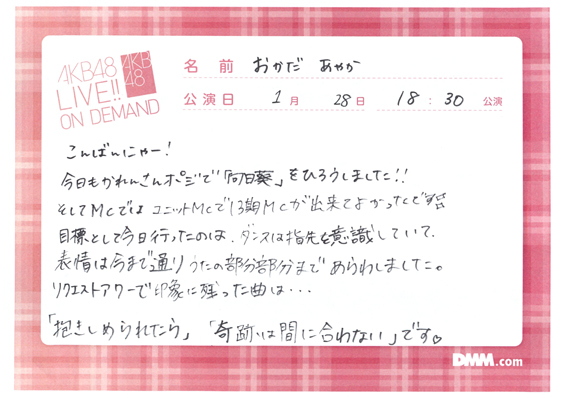 AKB48
LIVE!!
ON DEMAND
AKB
48
名前 おかだ あやか
公演日 1月 28日 18:30 公演
こんばんにゃー!
今日もかれんさんポジで「向日葵」をひろうしました!!
そしてMCでは ユニットMCで13期MCが出来てよかったです
目標として今日行ったのは、ダンスは指先を意識していて、
表情は今まで通りうたの部分部分まで あらわしました。
リクエストアワーで印象に残った曲は・・・
「抱きしめられたら」 「奇跡は間に合わない」です♡
DMM.com